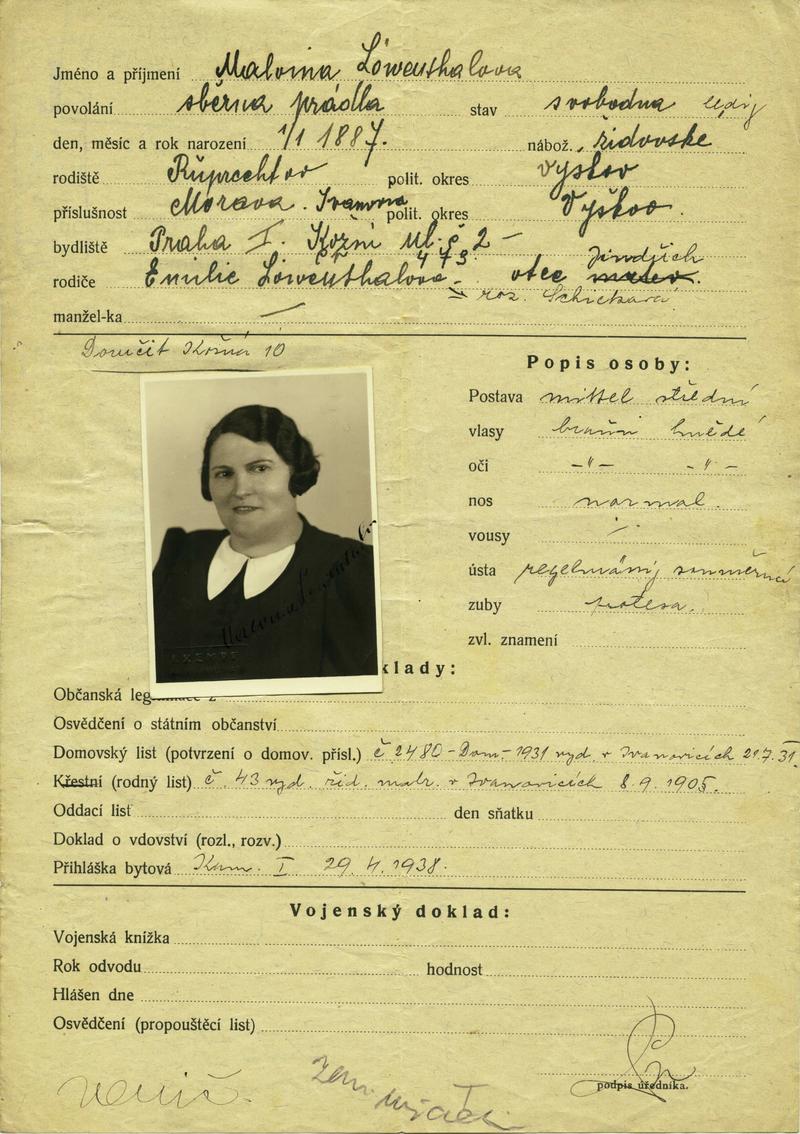 Jméno a příjmení Malvina Löwenthalova
povolání sběrna prádla stav svobodna ledig
den, měsíc a rok narození 1/1 1887. nábož. židovské
rodiště Ruprechtov polit. okres Vyškov
příslušnost Morava. Ivanovice polit. okres Vyškov.
bydliště Praha I. Kožní ul. č 2 –
čp 473
rodiče Emilie Löwenthalová. otec Jindřich
roz. Schicková
manžel-ka —
Doručit Kožná 10
Popis osoby:
Postava mittel střední
vlasy braun hnědé
oči –"– –"–
nos normal.
vousy ./.
ústa regelmäßig souměrná
zuby protesa.
zvl. znamení
Malvina Löwenthalova
klady:
Občanská legitimace č
Osvědčení o státním občanství
Domovský list (potvrzení o domov. přísl.) č 2480 - Dom - 1931 vyd. v Ivanovicích 21.7.31.
Křestní (rodný list) č. 43 vyd. žid. matr. v Ivanovicích 8.9.1905.
Oddací list den sňatku
Doklad o vdovství (rozl., rozv.)
Přihláška bytová Kom. I 29.4.1938.
Vojenský doklad:
Vojenská knížka
Rok odvodu hodnost
Hlášen dne
Osvědčení (propouštěcí list)
podpis úředníka.